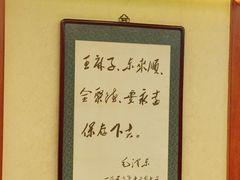 王麻子、东来顺、
全聚德、要永远
保存下去。
毛泽东